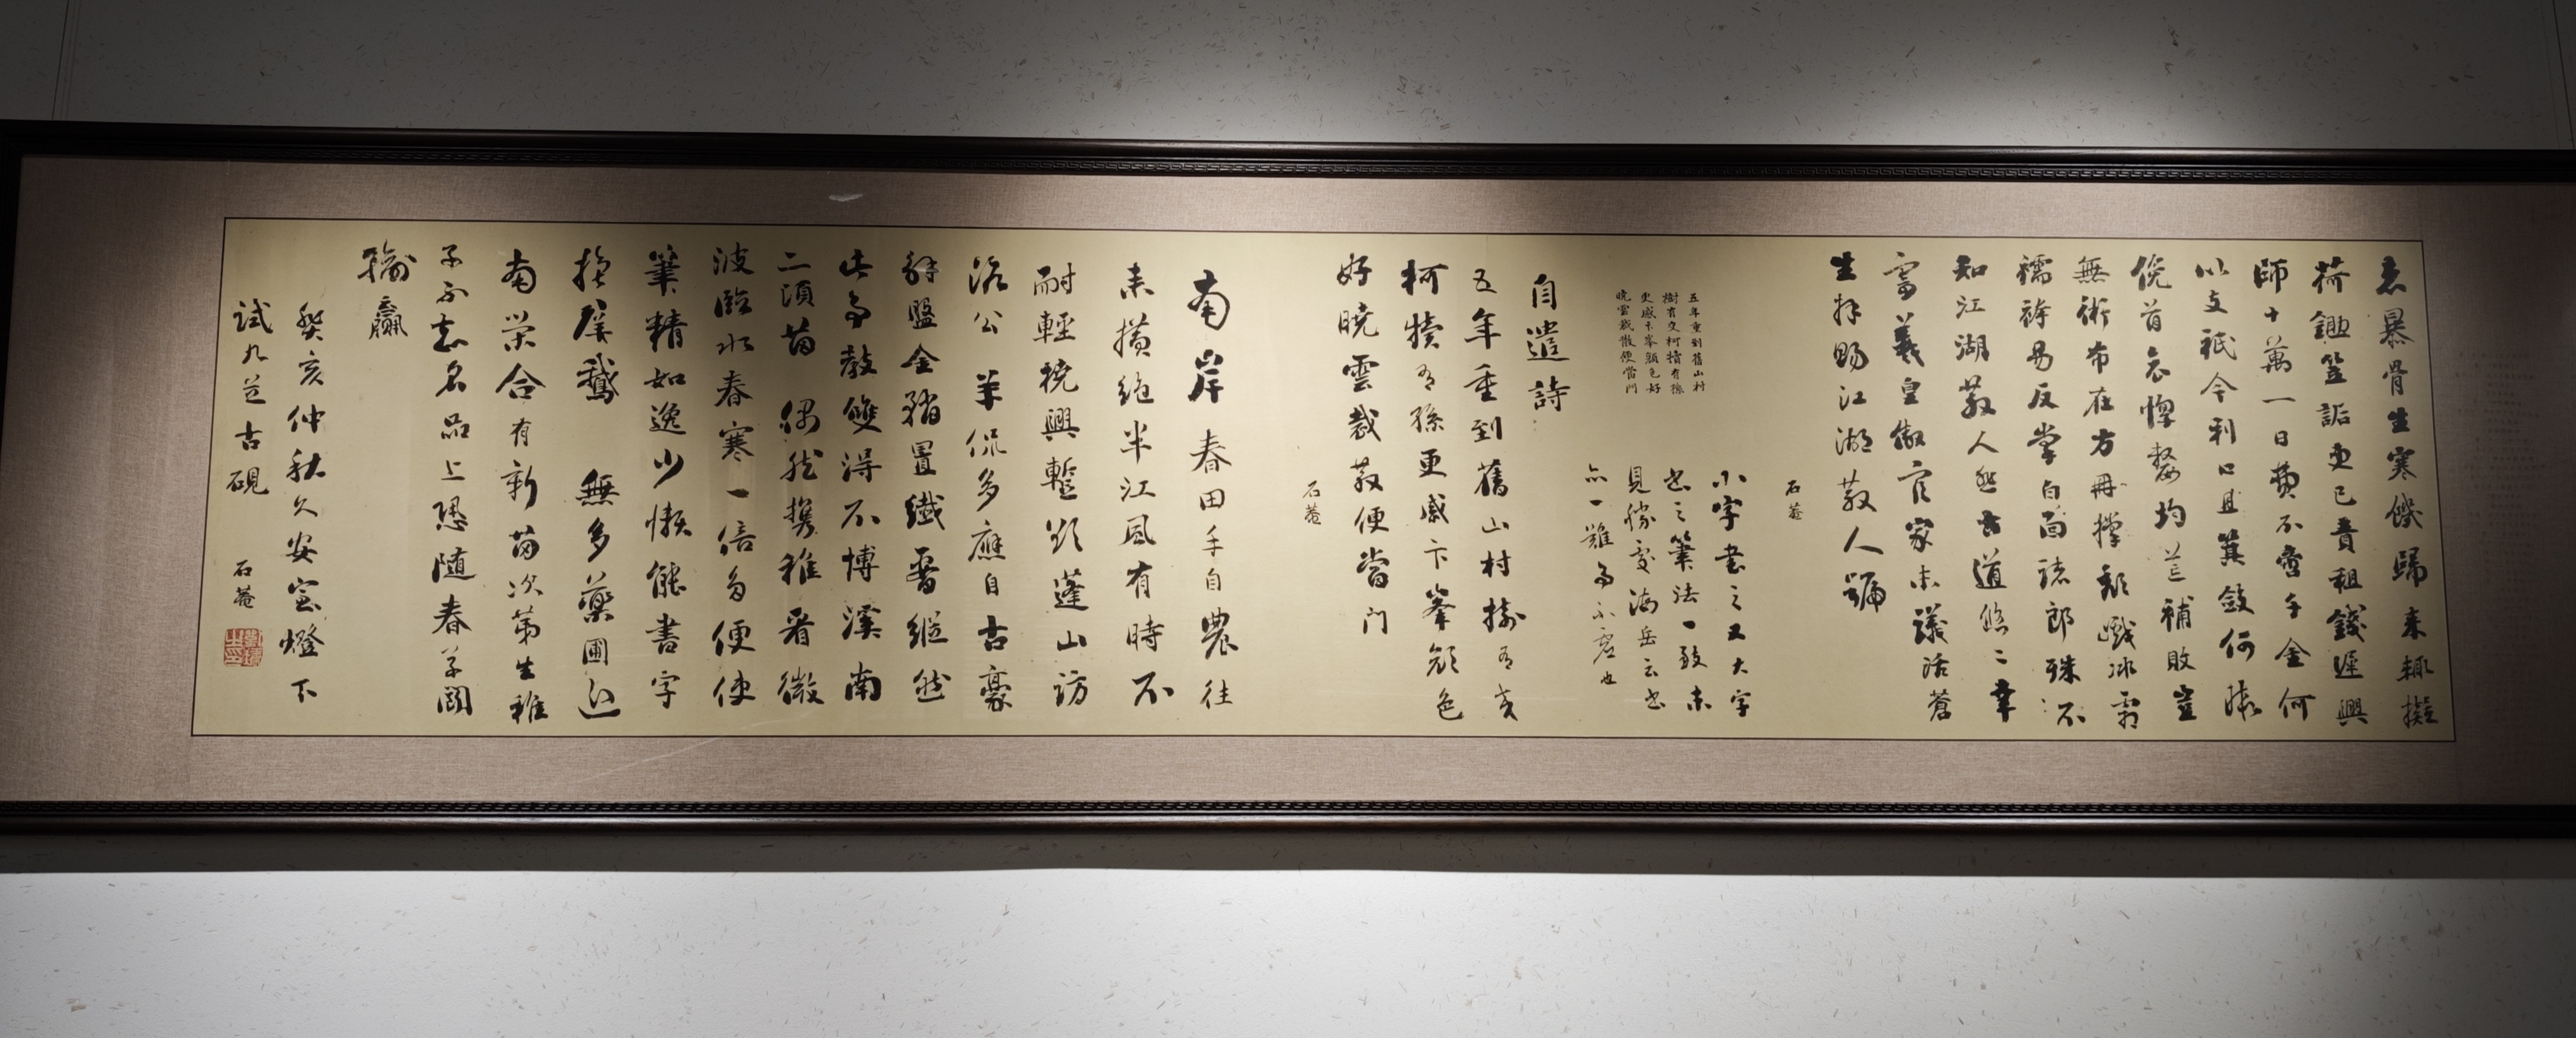 意暴骨生寒餓歸來輒擬
荷鋤笠詬吏已責租錢遲興
師十萬一日費不啻千金何
以支祇今利口且箕斂何
俛首哀惸嫠均 補敗豈
無術布在方冊撐 冰霜
襦袴易反掌白面諸郎殊不
知江湖散人 古道悠二幸
寄羲皇傲官家未議活蒼
生拜賜江湖散人號
石菴
小字書之又大字
書之筆法一致未
見 海岳云書
亦一難 不虛也
五年重到舊山村
樹有交柯犢有孫
更感卞峯顏色好
曉雲裁散便當門
自遣詩
五年重到舊山村樹有交
柯犢有孫更感卞峯顏色
好曉雲裁散便當門
石菴
南岸春田手自農往
來橫絕半江風有時不
耐輕橈興暫 蓬山訪
洛公 羊侃多應自古豪
解盤金矟置纖 縱然
此 教雙得不博溪南
二頃苗 偶然攜稚看微
波臨水春寒一倍多便使
筆精如逸少懶能書字
換群鵝 無多藥圃近
南榮合有新苗次第生稚
子不知名品上恐隨春草鬪
輸贏
癸亥仲秋久安室燈下
試九芝古硯 石菴
劉墉之印